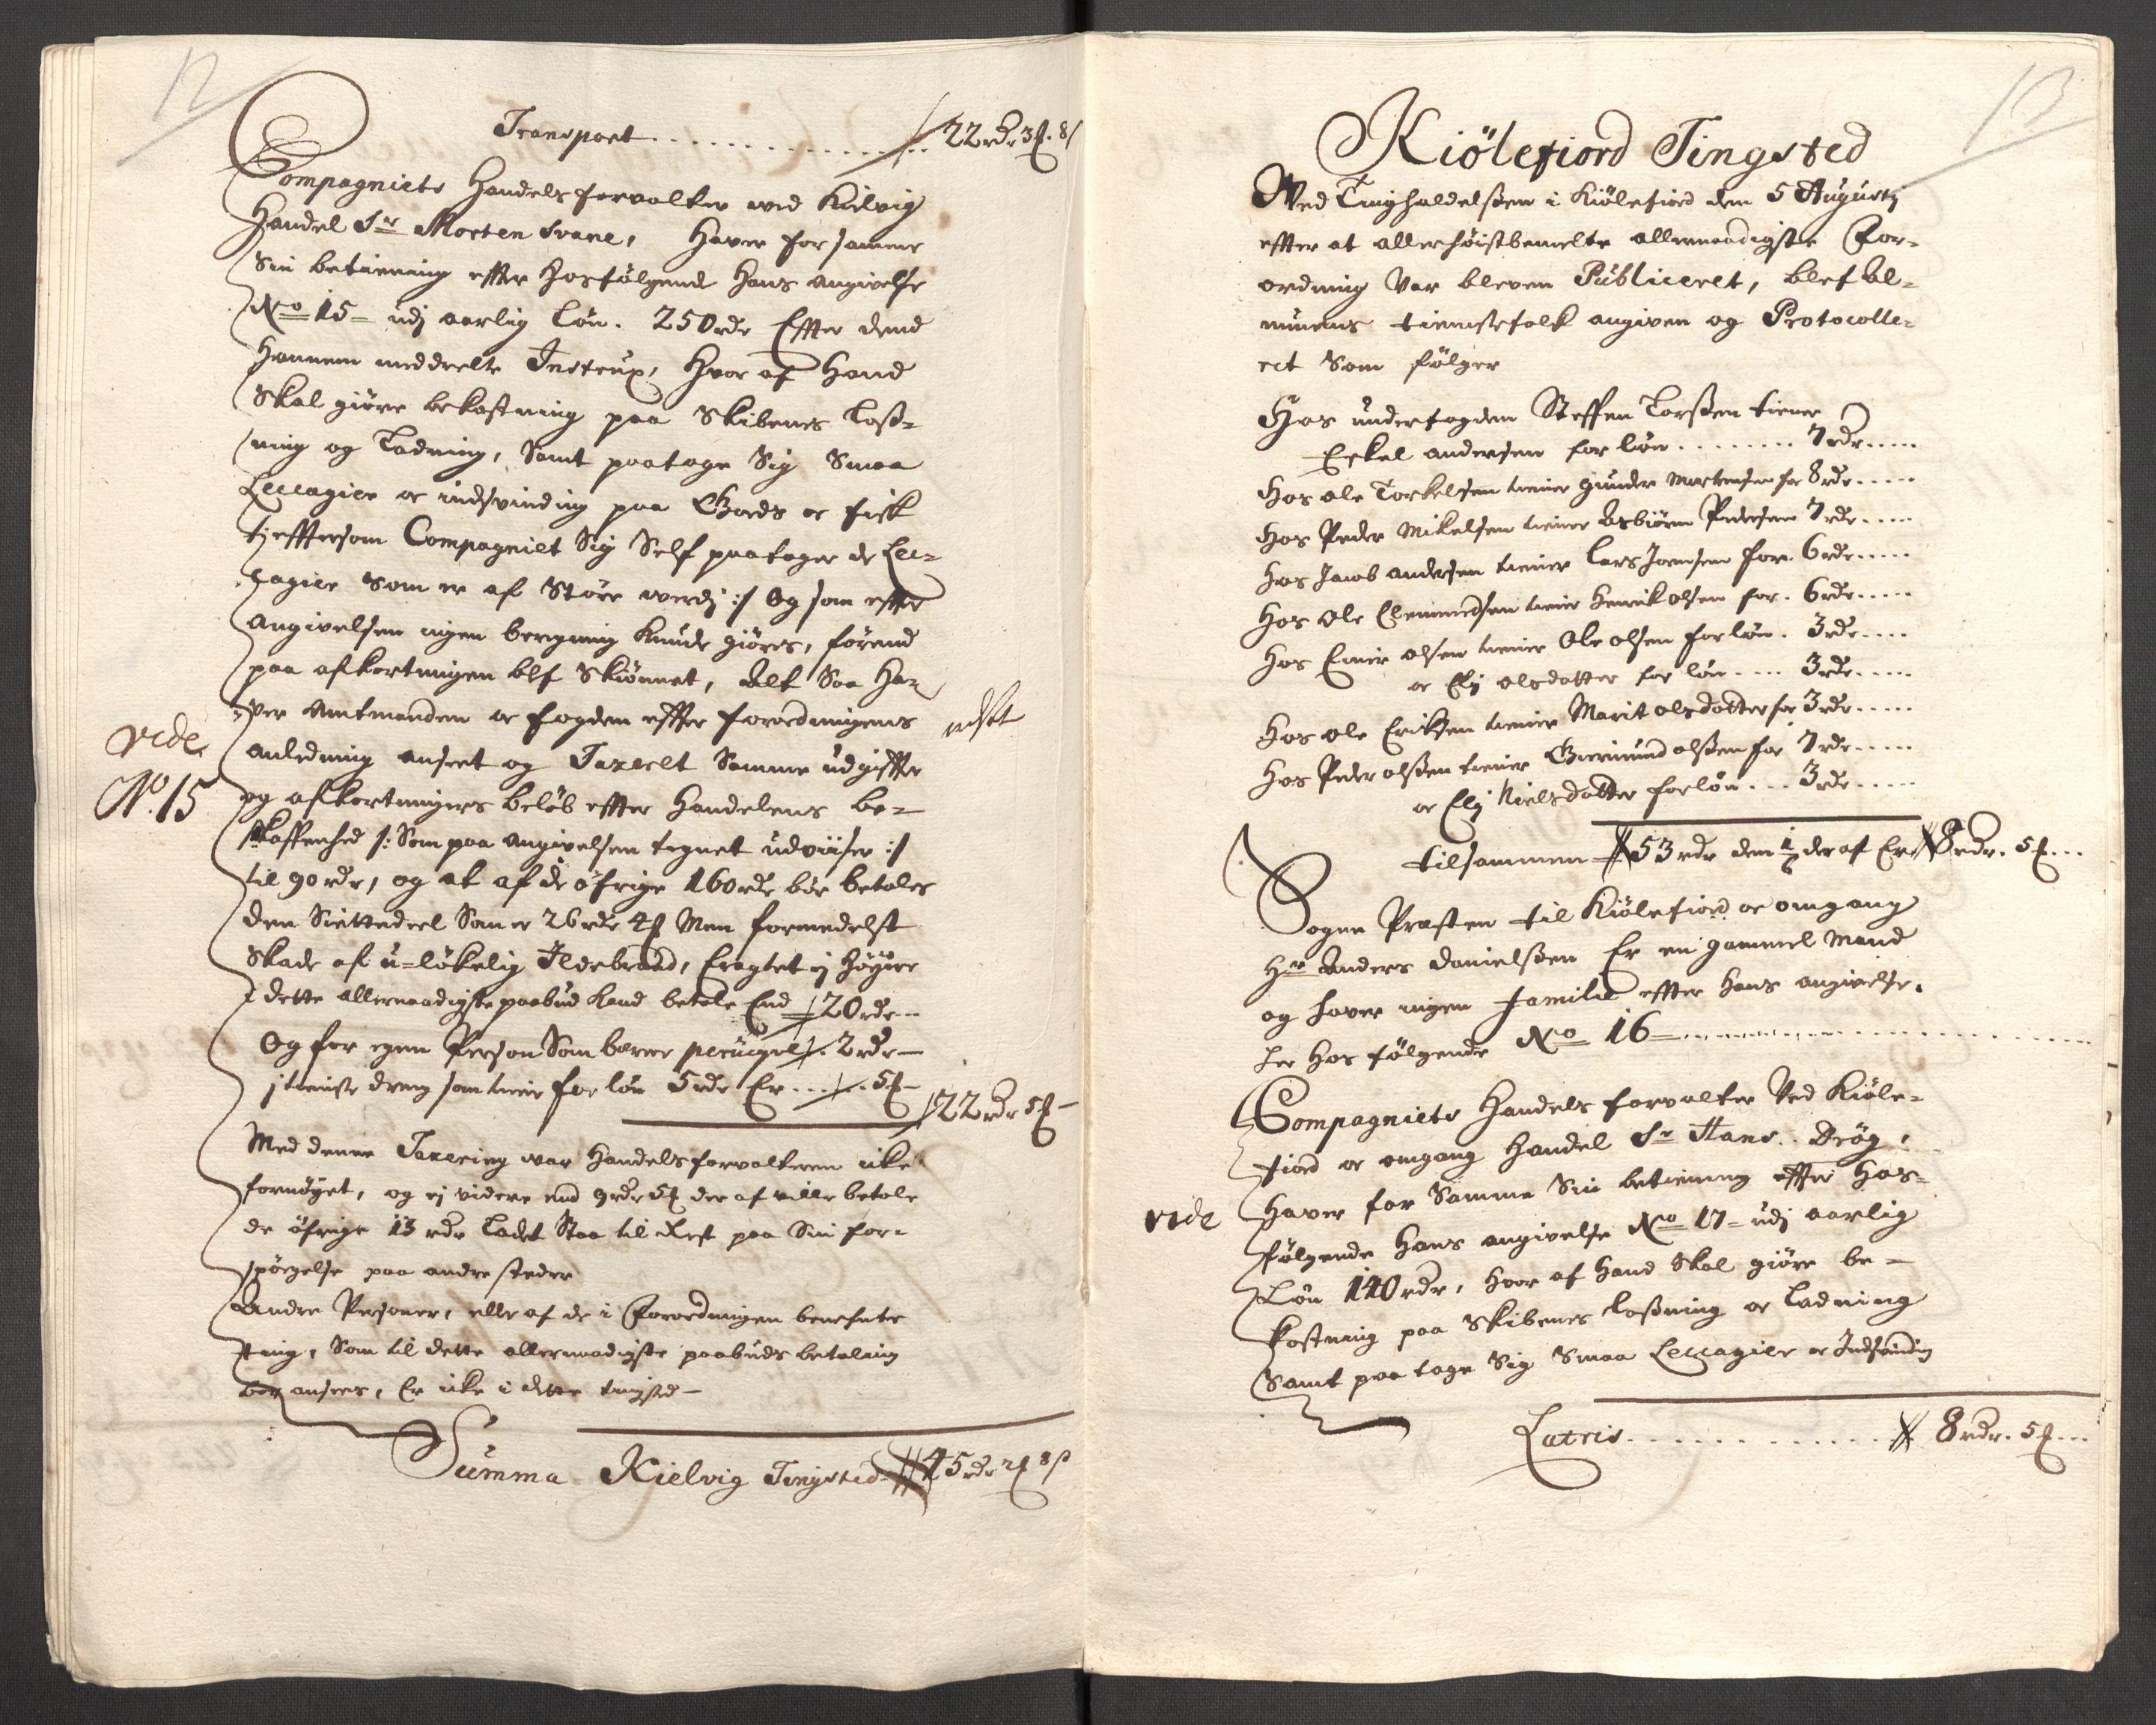 12
Transport . . . . . . . . . . . . 22 rdr 3 ß. 8 /
Compagniets Handels forvalter ved Kielvig
Handel Sr Morten Svane, Haver for samme
Sin betiening effter hosfölgende hans angivelse
No 15 udj aarlig Løn. 250 rdr Effter dend
hannem meddeelte Instrux, hvor af Hand
Skal giöre bekostning paa Skibenes Loss-
ning og Ladning, Samt paatage Sig Smaa
Leccagier oc indsvinding paa Gods oc fisk
tj efftersom Compagniet Sig Self paatager de Lec-
cagier Som er af Störe werdj :/ Og som effter
Angivelsen ingen beregning kunde giöres, førend
paa afkortningen blef Skiönnet, Alt Saa Ha-
ver Amtmanden oc fogden effter forordningens
anledning anseet og Taxeret Samme udgiffter
og afkortningers beløb effter Handelens be-
skaffenhed /: Som paa angivelsen tegnet udviiser :/
til 90 rdr, og at af de öfrige 160 rdr bør betales
den Siettedeel Som er 26 rdr 4 ß Men formedelst
Skade af u-lökelig Ildebrand, Eragtet ej höyere
dette allernaadigste paabud kand betale End 20 rdr
Og for egen Person Som bærer peruque 2 rdr
1 tieniste dreng som tiener for løn 5 rdr Er . . . 5 ß
22 rdr 5 ß
vide
No. 15
Med denne Taxering var Handels forvalteren icke
fornöyet, og ej videre end 9 rdr 5 ß der af ville betale
de öfrige 13 rdr Ladet Staa til Rest paa Sin for-
spörgelse paa andre steder
Andre Personer, eller af de i Forordningen benefnte
ting, Som til dette allernaadigste paabuds betaling
bør ansees, Er icke i dette tingsted
Summa Kielvig Tingsted 45 rdr 2 ß 8 /
13
Kiölefiord Tingsted
Ved Tingholdelssen i Kiölefiord den 5 Augustj
effter at allerhöistbemelte allernaadigste For-
ordning Var bleven Publiceret, blef Al-
muens tienistefolk angiven og Protocolle-
ret Som fölger
Hos underfogden Steffen Larssen tiener
Eskel andersen for løn . . . . . . . 7 rdr . . . .
Hos ole Torkelsen tiener gunder Mortensen for 8 rdr . . . .
Hos Peder Mikelsen tiener Asbiörn Pedersen 7 rdr . . . .
Hos Jacob andersen tiener Lars Joensen for. 6 rdr . . . .
Hos ole Clemmedsen tiener Henrik olsen for. 6 rdr . . . .
Hos Einer olsen tiener Ole olsen for løn. 3 rdr . . . .
oc Elj olsdatter for løn . . . . 3 rdr . . . .
Hos ole Eriksen tiener Marit olsdatter for 3 rdr . . . .
Hos Peder olssen tiener Giermund olssen for 7 rdr . . . .
oc Elj Nielsdatter for løn . . . 3 rdr . . . .
tilsammen 53 rdr den 1/6 der af Er 8 rdr. 5 ß . . .
Sogne Præsten til Kiölefiord oc omgang
Hr Anders Danielssen Er en gammel Mand
og haver ingen familie effter hans angivelse.
hos fölgende No 16
Compagniets Handels forvalter Ved Kiöle-
fiord oc omgang Handel Sr Hans Drög,
Haver for Samme Sin betiening effter Hos-
fölgende Hans angivelse No 17 udj aarlig
Løn 140 rdr, hvor af Hand Skal giöre be-
kostning paa Skibenes Lossning oc Ladning
Samt paa tage Sig Smaa Leccagier oc Indsvinding
vide
Lateris . . . . . . . . . . . 8 rdr. 5 ß . . .